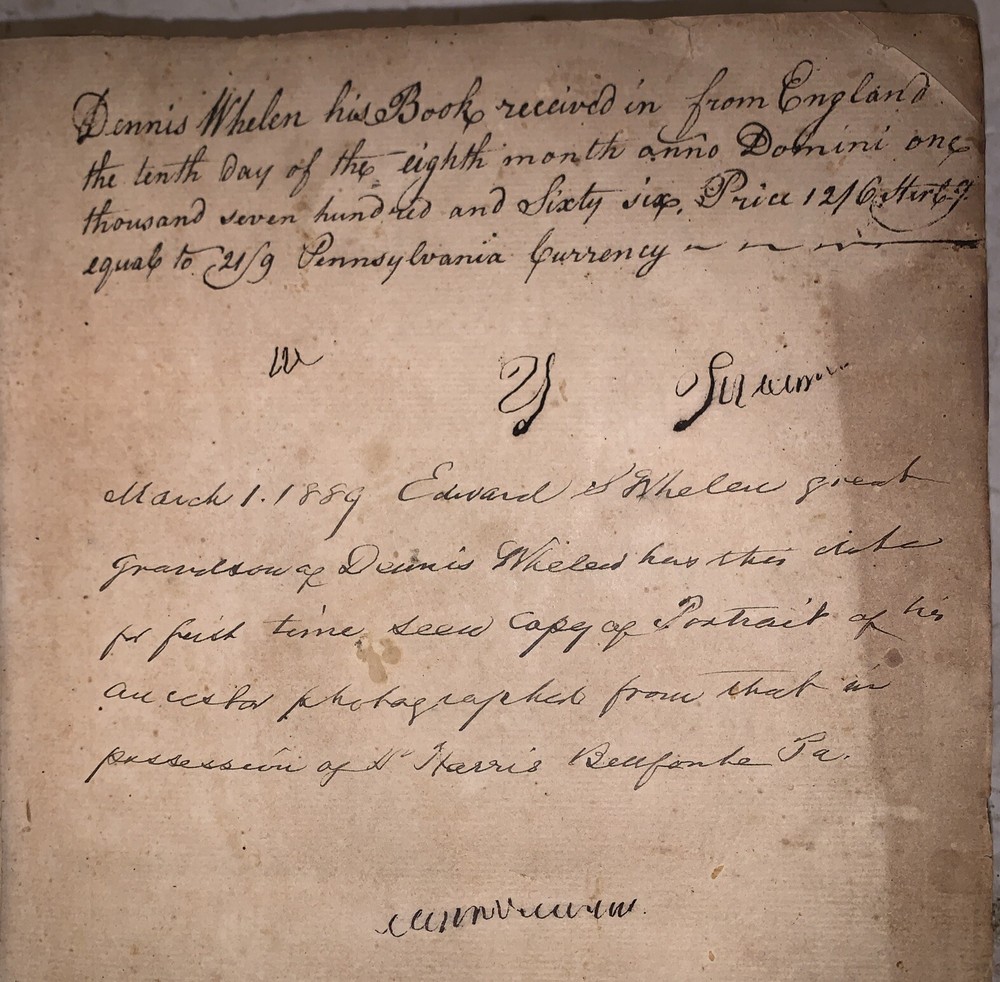 Dennis Whelen his Book received in from England
the tenth Day of the eighth month anno Domini one
thousand seven hundred and Sixty six, Price 12/6 Sterl.g
equal to 21/9 Pennsylvania Currency
March 1. 1889 Edward S Whelen great
grandson of Dennis Whelen has this date
for first time seen copy of Portrait of his
ancestor photographed from that in
possession of Dr Harris Bellfonte Pa.